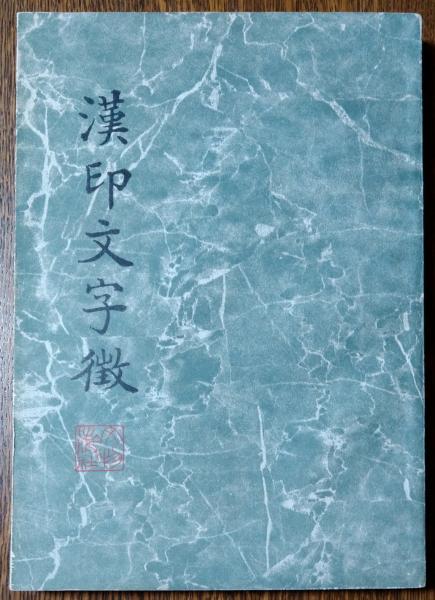 漢印文字徵